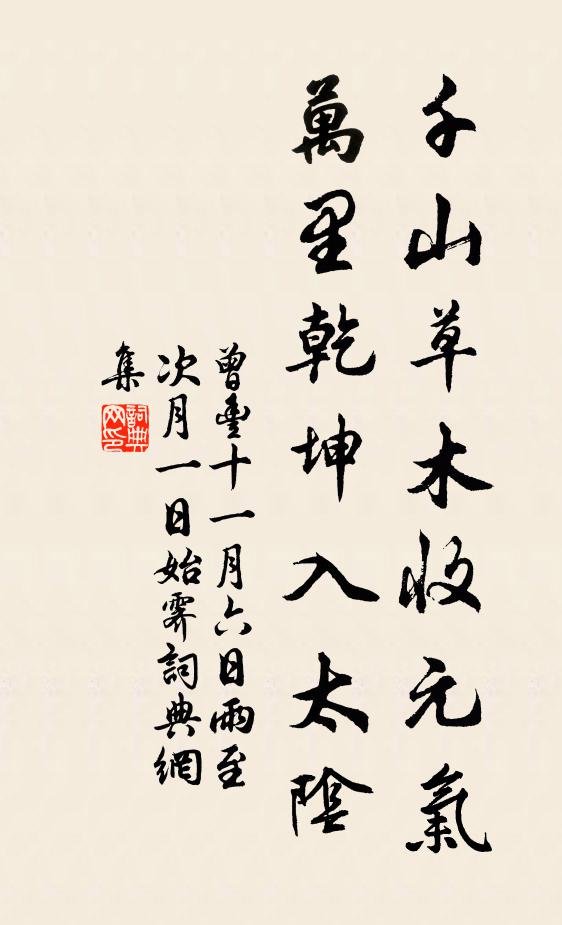 千山草木收元氣
萬里乾坤入太陰
曾豐十一月六日雨至
次月一日始霽詞典網
集
詞典網印